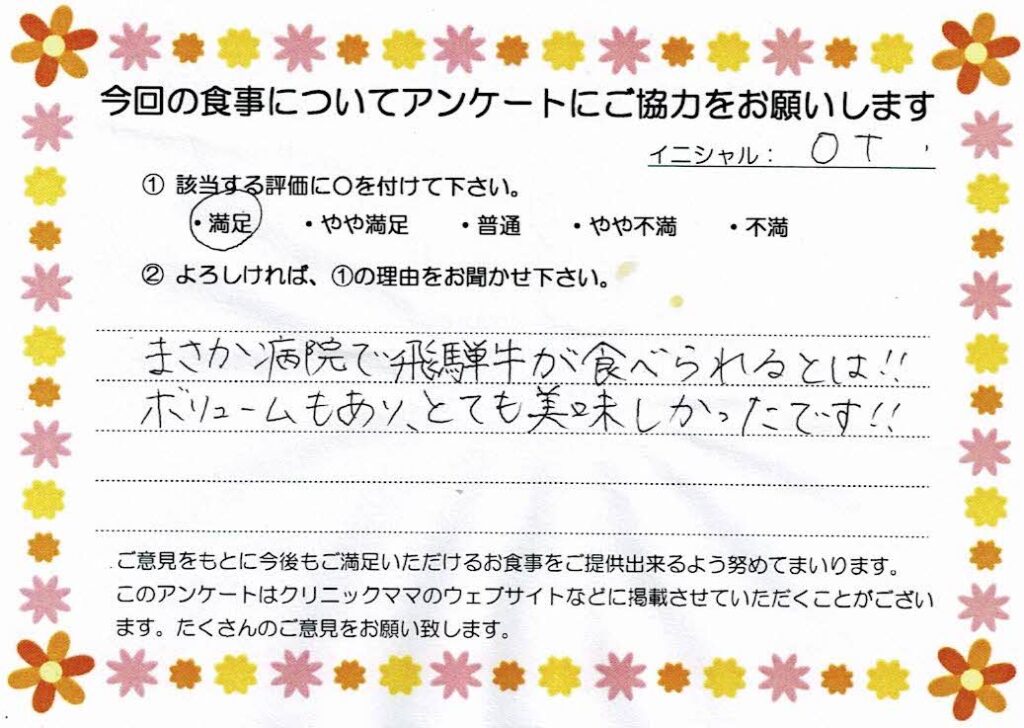 今回の食事についてアンケートにご協力をお願いします
イニシャル： OT
① 該当する評価に〇を付けて下さい。
・満足 ・やや満足 ・普通 ・やや不満 ・不満
② よろしければ、①の理由をお聞かせ下さい。
まさか病院で飛騨牛が食べられるとは!!
ボリュームもあり、とても美味しかったです!!
ご意見をもとに今後もご満足いただけるお食事をご提供出来るよう努めてまいります。
このアンケートはクリニックママのウェブサイトなどに掲載させていただくことがござい
ます。たくさんのご意見をお願い致します。